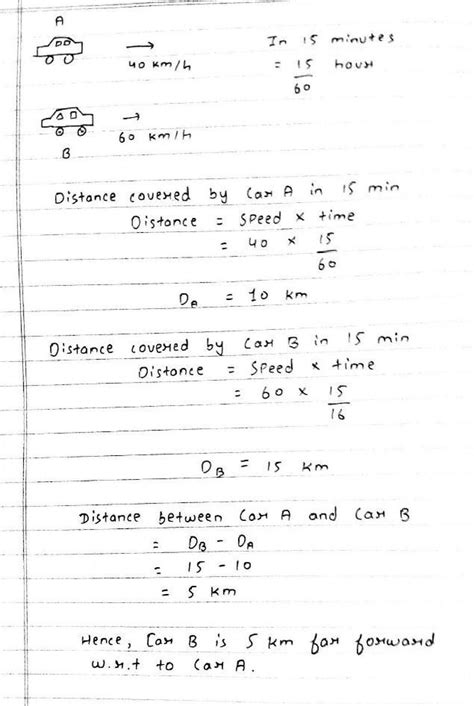 A
40 km/h
In 15 minutes
= 15 hour
60
60 km/h
B
Distance covered by Car A in 15 min
Distance = Speed × time
= 40 × 15
60
DA = 10 km
Distance covered by Car B in 15 min
Distance = Speed × time
= 60 × 15
16
DB = 15 km
Distance between Car A and Car B
= DB - DA
= 15 - 10
= 5 km
Hence, Car B is 5 km far forward
w.r.t to Car A.